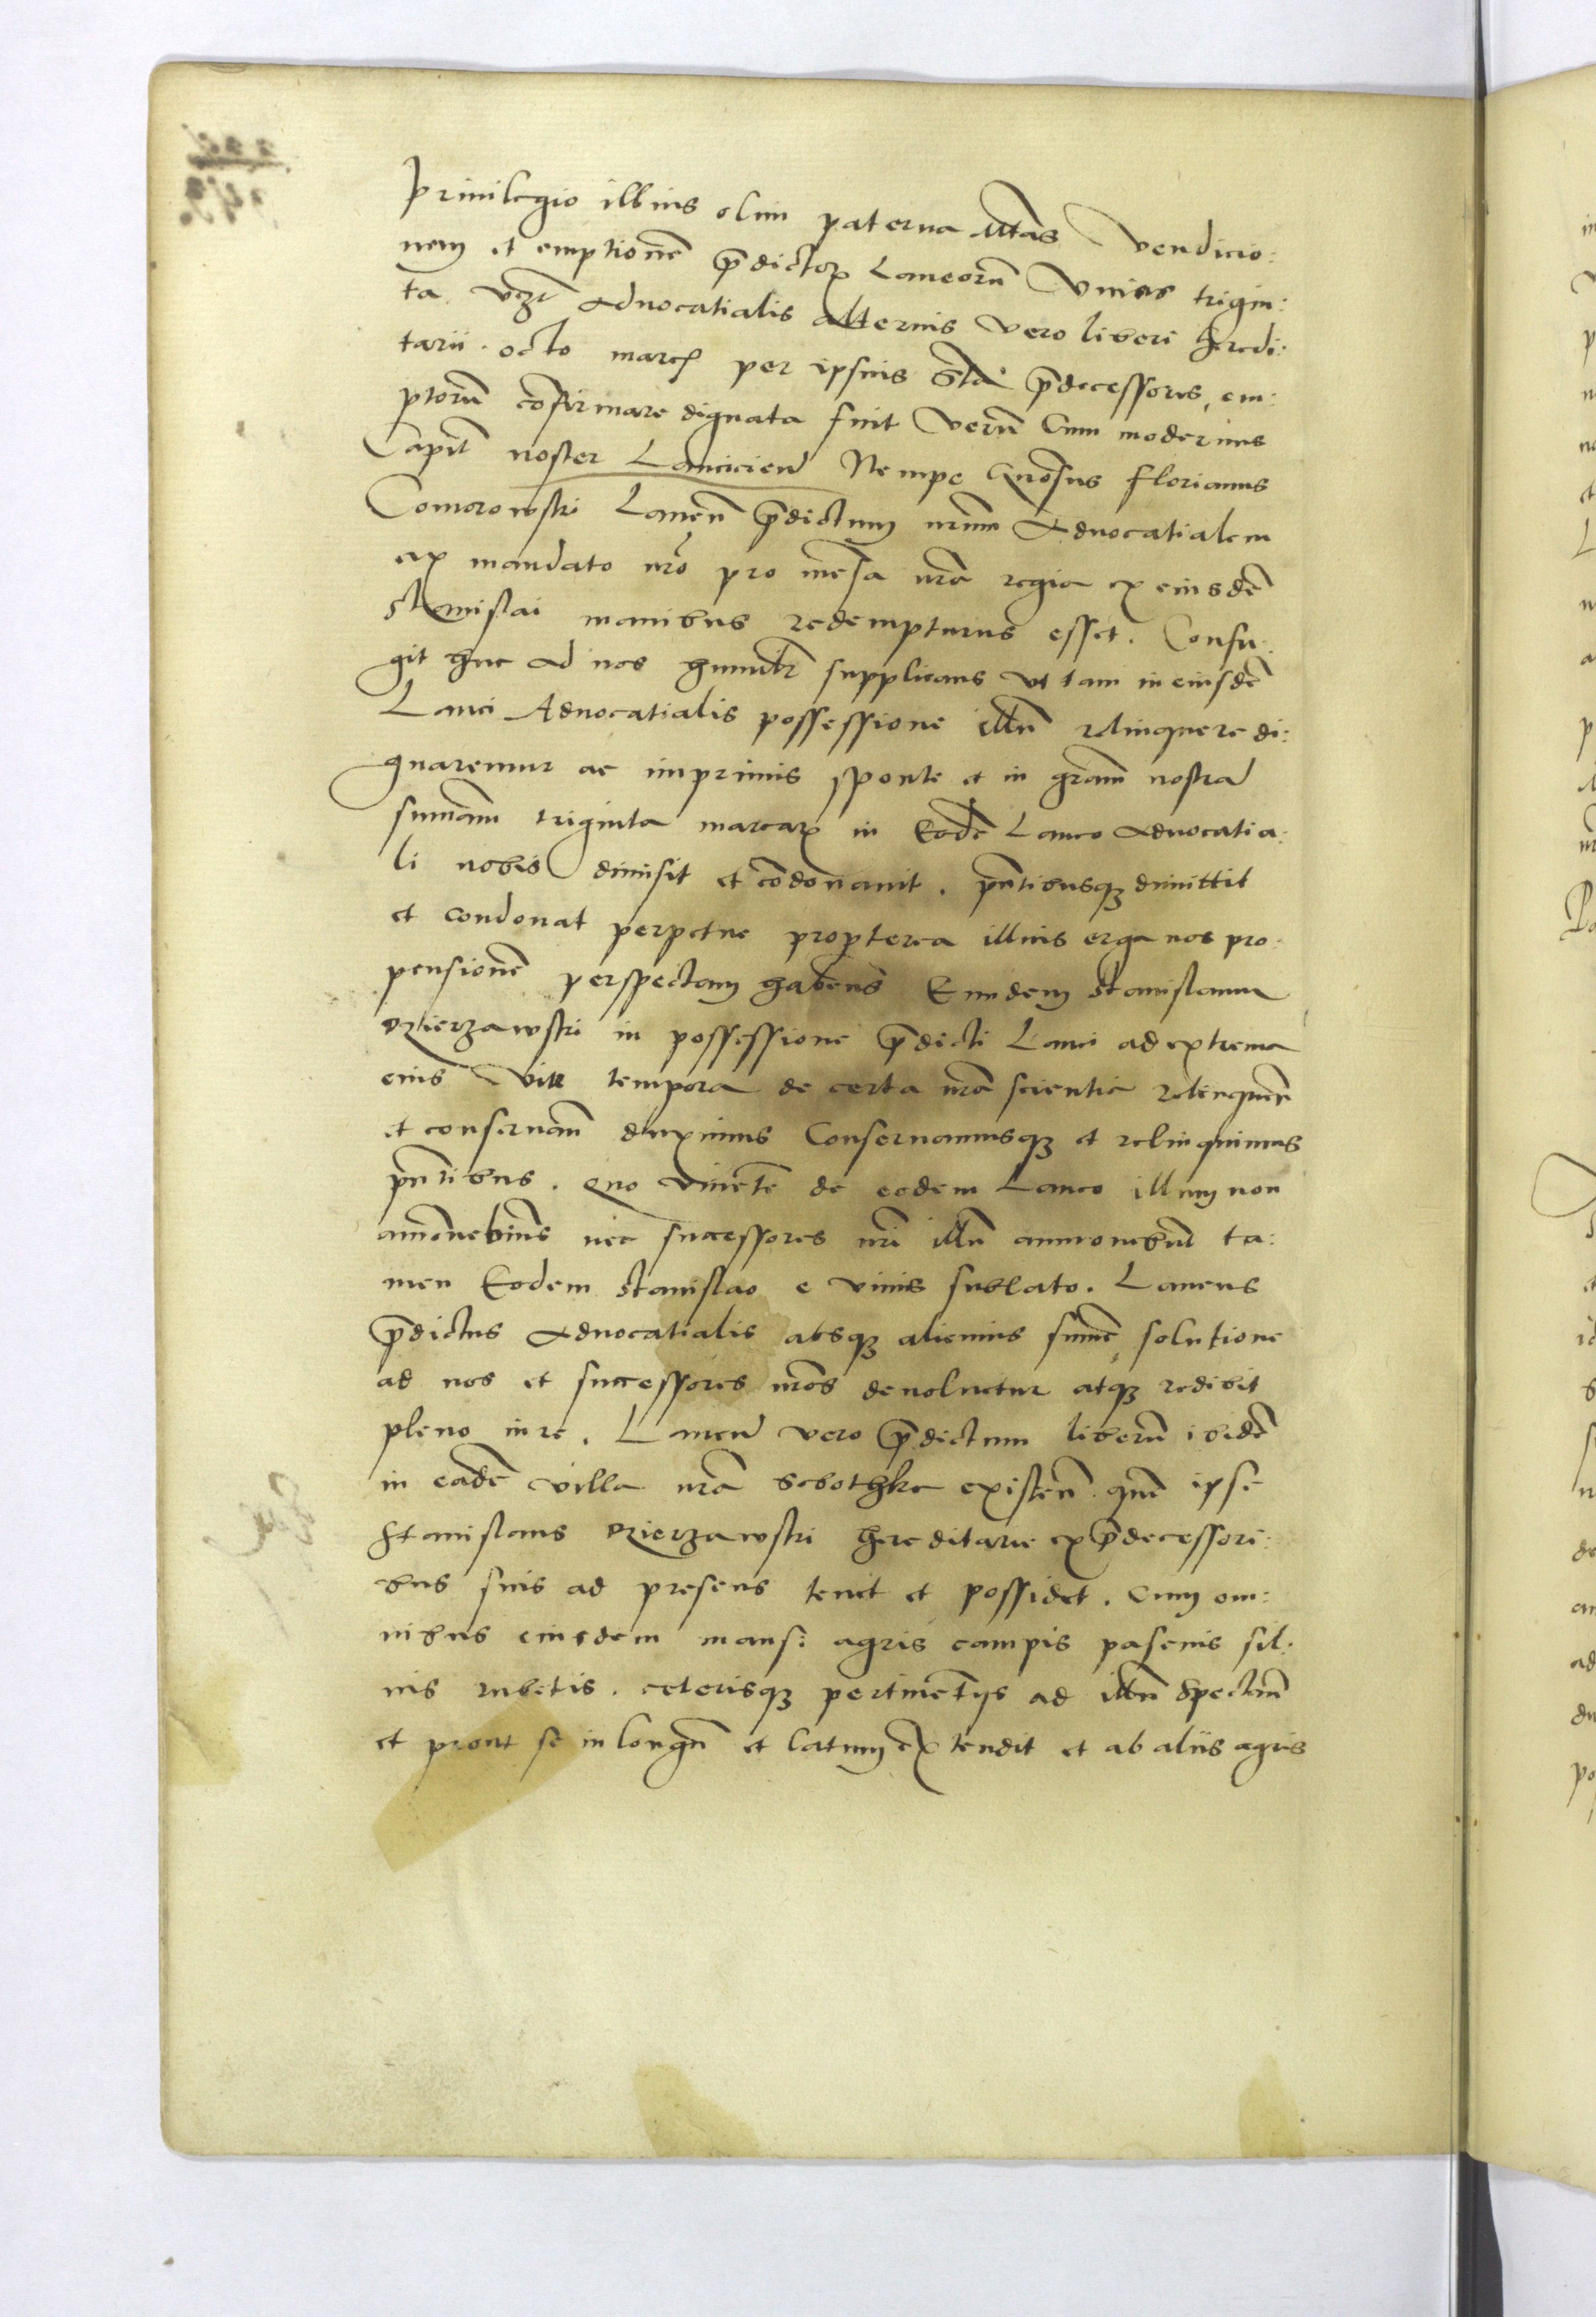 priuilegio illius olim paterna Mtas vendicio:
nem et emptionẽ p̃dictoꝝ Laneorũ Vnius trigin:
ta vcz̃ Aduocatialis alterius vero liberi heredi:
tarii octo march per ipsius p̃decessores, em:
ptorũ cõfirmare dignata fuit Verũ Cum modernus
Capit̃ noster Lancicieñ Nempe Gnõsus Florianus
Comorowski Laneũ p̃dictum nr̃um Aduocatialem
ex mandato nr̃o pro mẽsa nr̃a regia ex eiusdẽ
Stanislai manibus redempturus esset. Confu:
git huc ad nos humilr̃ supplicans vt tam in eiusdẽ
Lanei Aduocatialis possessione illũ relinquere di:
gnaremur ac imprimis sponte et in grãm nostrã
sum̃am triginta marcaꝝ in Eodẽ Laneo Aduocatia:
li nobis dimisit et cõdonauit. pñtibusqꝫ dimittit
et condonat perpetue propterea illius erga nos pro:
pensionẽ perspectam habens Eundem Stanislaum
Dzierzawski in possessione p̃dicti Lanei ad extrema
eius vite tempora de certa nr̃a scientia relinquen̄
et conseruan̄ duximus Conseruamusqꝫ et relinquimus
pñtibus. Quo viuẽte de eodem Laneo illum non
amouebimus nec successores nr̃i illũ ammouebũt ta:
men Eodem Stanislao e viuis sublato. Laneus
p̃dictus Aduocatialis absqꝫ alicuius sum̃e solutione
ad nos et successores nr̃os deuoluetur atqꝫ redibit
pleno iure. Laneũ vero p̃dictum liberũ ibidẽ
in eadẽ villa nr̃a Sobothka existeñ. quẽ ipse
Stanislaus Dzierzawski hereditarie ex p̃decessori:
bus suis ad presens tenet et possidet. Cum om:
nibus eiusdem mansi agris campis pascuis sil:
uis rubetis. ceterisqꝫ pertinẽtijs ad illũ spectañ
et prout se in longũ et latum extendit et ab aliis agris